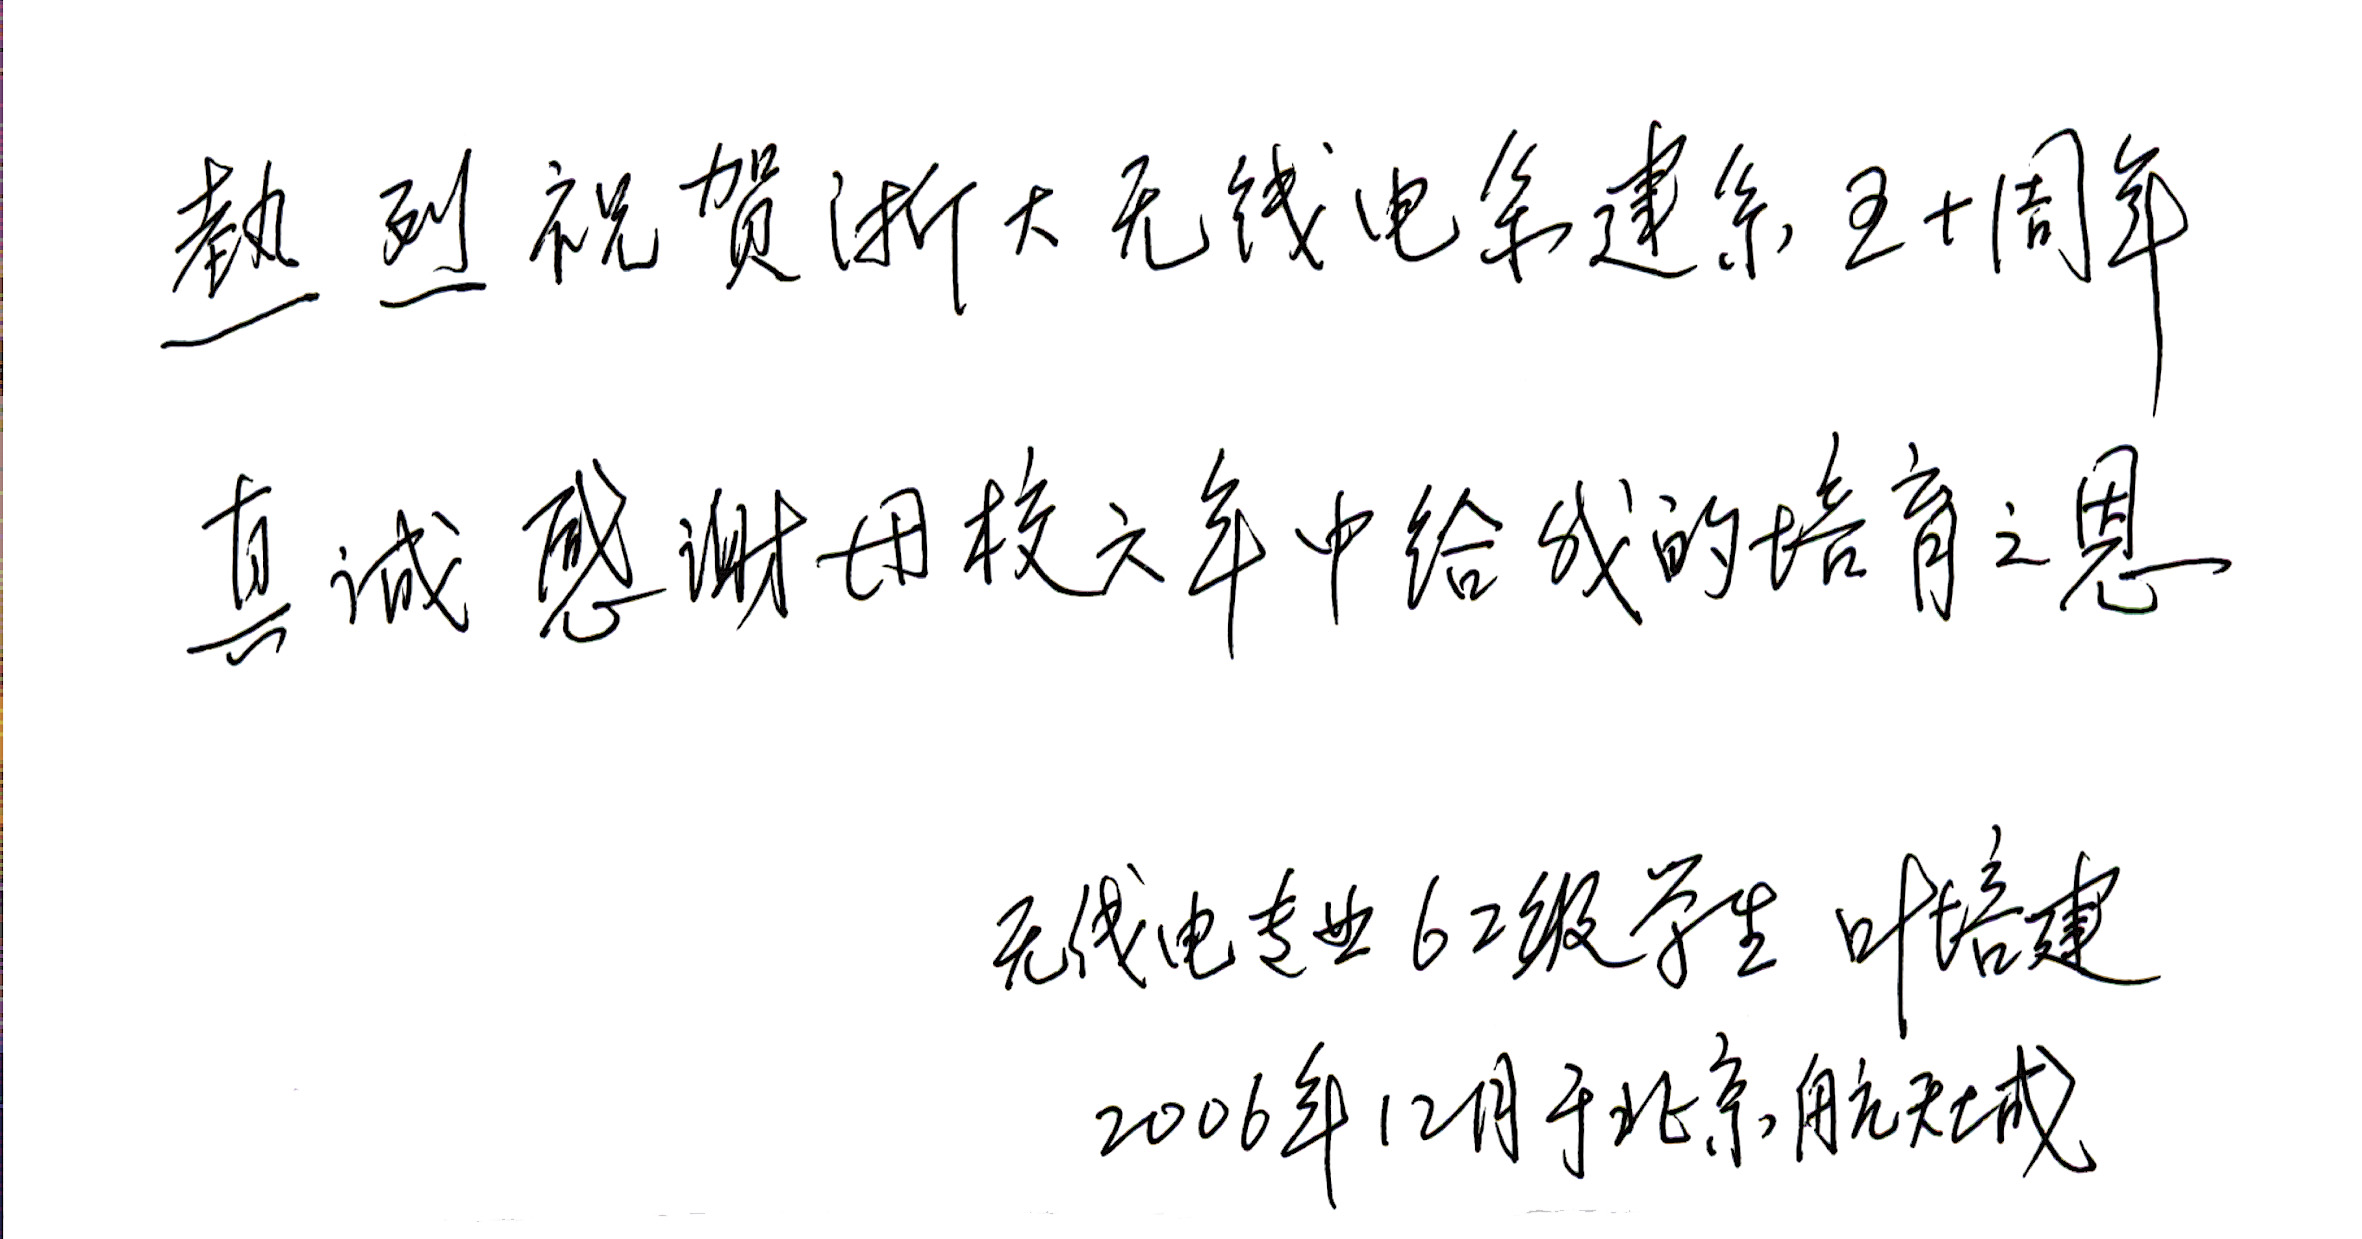 热烈祝贺浙大无线电系建系五十周年
真诚感谢母校六年中给我的培育之恩
无线电专业62级学生 叶培建
2006年12月于北京航天城